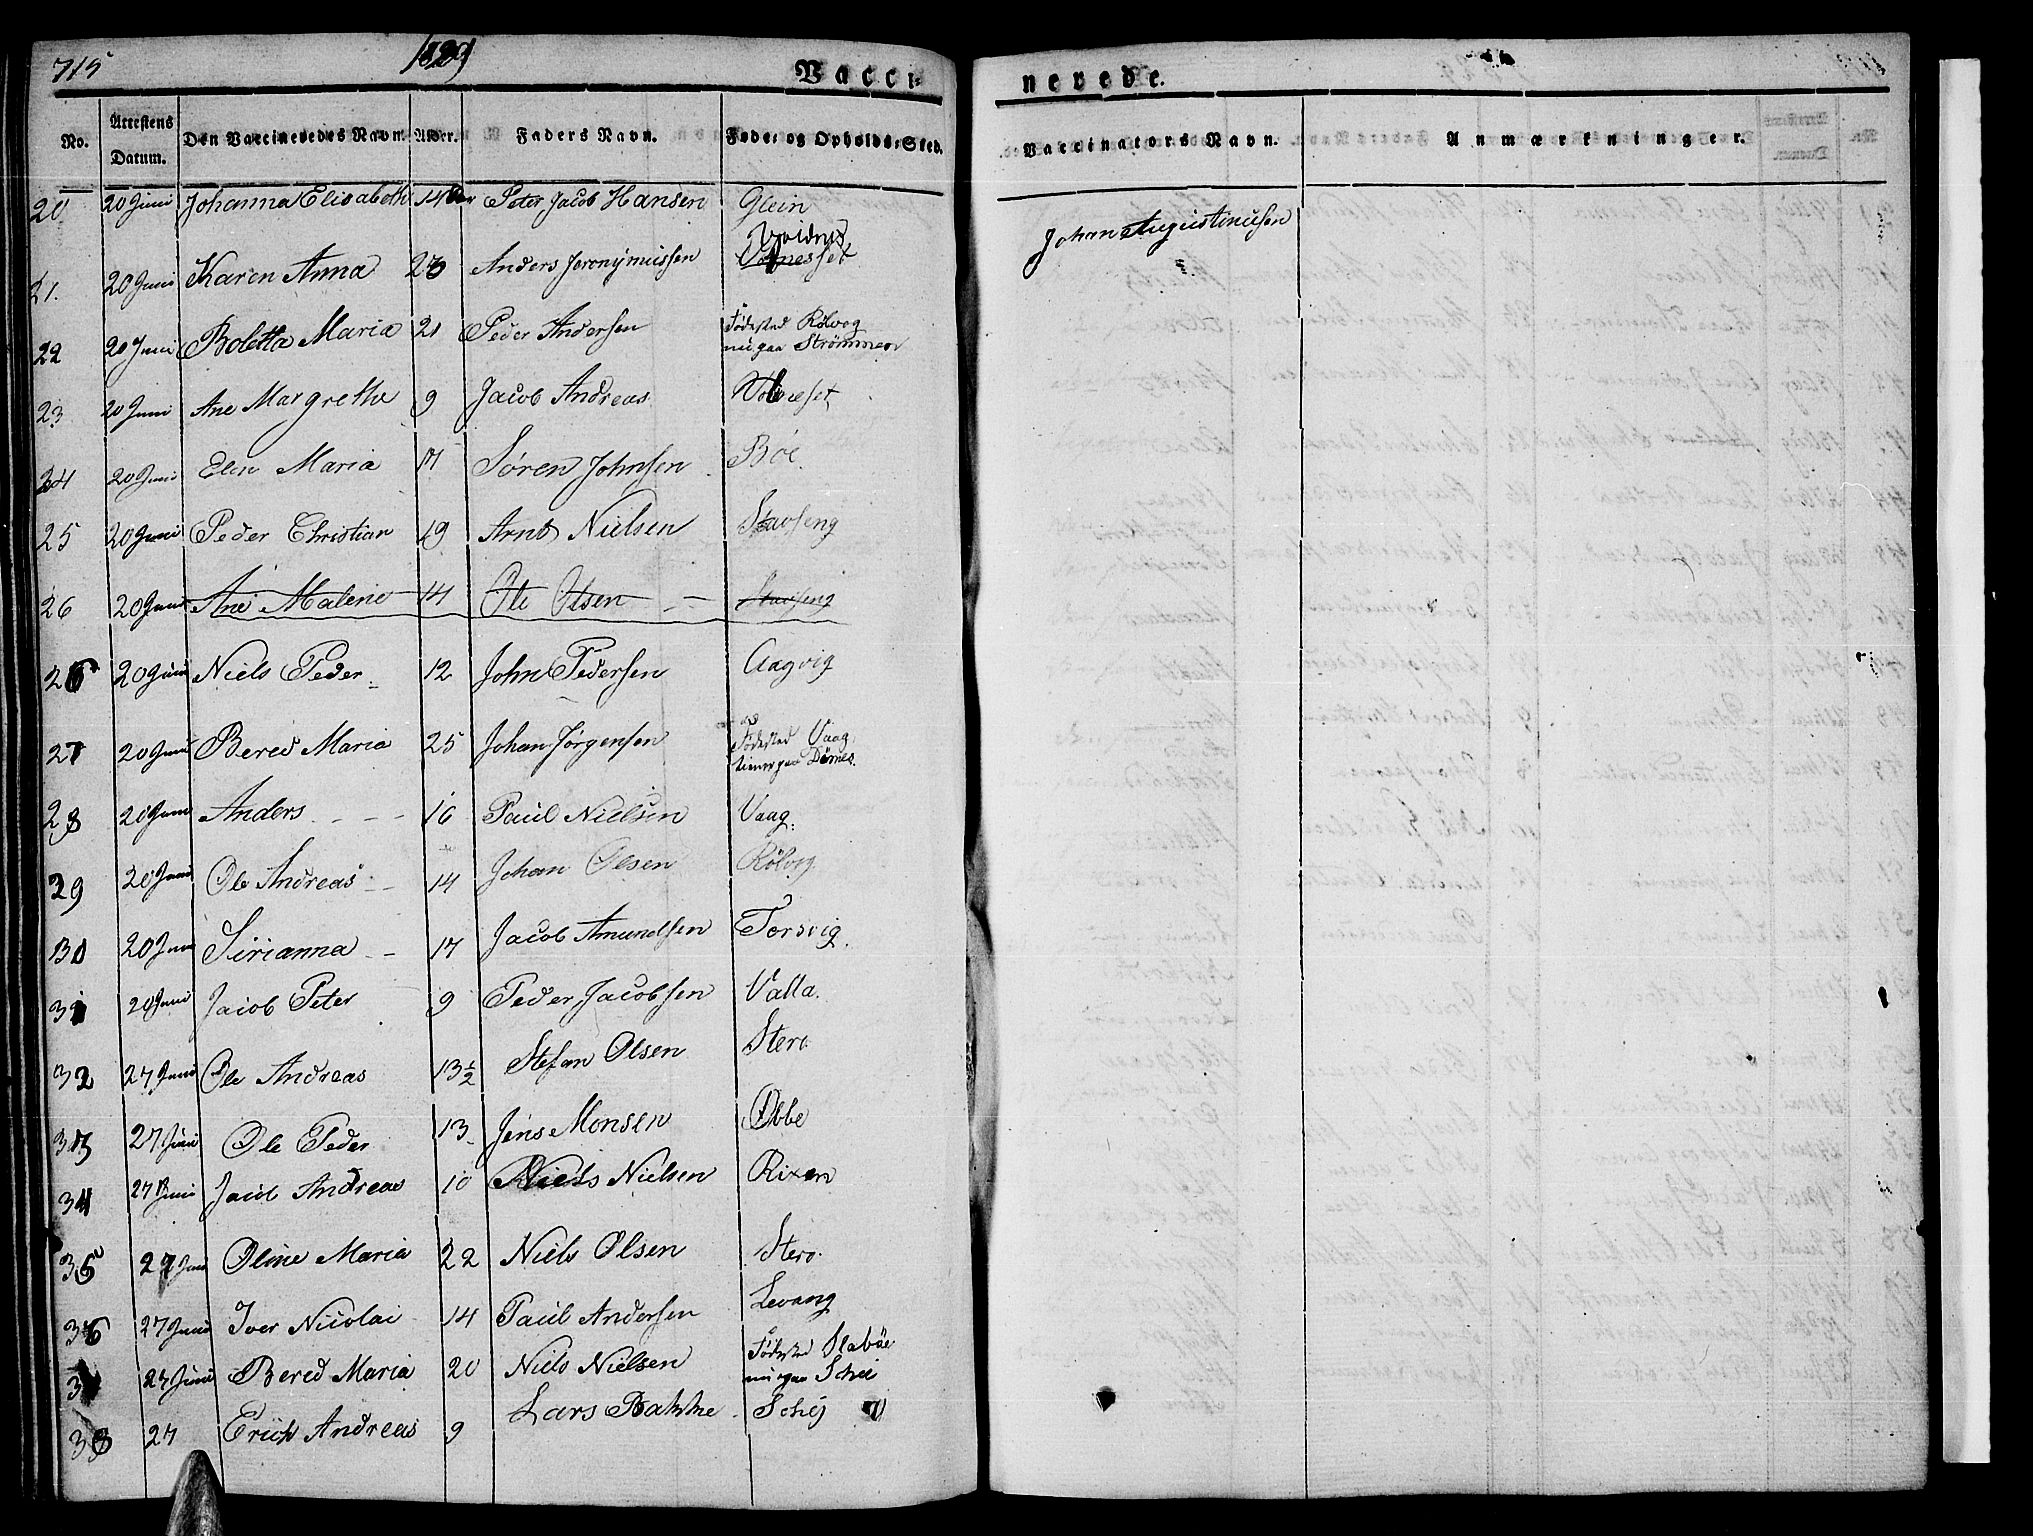 715
1829
Vacci-
nerede.
No. Attestens Datum. Den Vaccineredes Navn. Alder. Faders Navn. Føde- og Opholds-Sted.
Vaccinators Navn. Anmærkninger.
20 20 Juni Johanna Elisabeth 14 Peter Jacob Hansen Glein
Johan Augustinusen
21. 20 Juni Karen Anna 23 Anders Jeronymussen
22 20 Juni Boletta Maria 21 Peder Andersen Fødested Rølvog
nu paa Strømmen
23 20 Juni Ane Margrethe 9 Jacob Andreas
24 20 Juni Elen Maria 17 Sören Johnsen Böe
25 20 Juni Peder Christian 19 Arnt Nielsen Stavseng
26 20 Juni Ane Malene 14 Ole Olsen Stavseng
26 20 Juni Niels Peder 12 John Pedersen Aagvig
27 20 Juni Bered Maria 25 Johan Jørgensen Fødested Vaag
tiener paa Dönnes
28 20 Juni Anders 16 Paul Nielsen Vaag
29 20 Juni Ole Andreas 14 Johan Olsen Rølvog
30 20 Juni Sirianna 17 Jacob Amundsen Torsvig
31 20 Juni Jacob Peter 9 Peder Jacobsen Valla.
32 27 Juni Ole Andreas 13½ Stefan Olsen Stero
33 27 Juni Ole Peder 13 Jens Monsen Øbbe
34 27 Juni Jacob Andreas 10 Niels Nielsen Rixen
35 27 Juni Oline Maria 22 Niels Olsen Stero
36 27 Juni Iver Nicolai 14 Paul Andersen Levang
27 Juni Bered Maria 20 Niels Nielsen Fødested Slabøe
nu paa Schei
38 27 Erich Andreas 9 Lars Bakke Schej